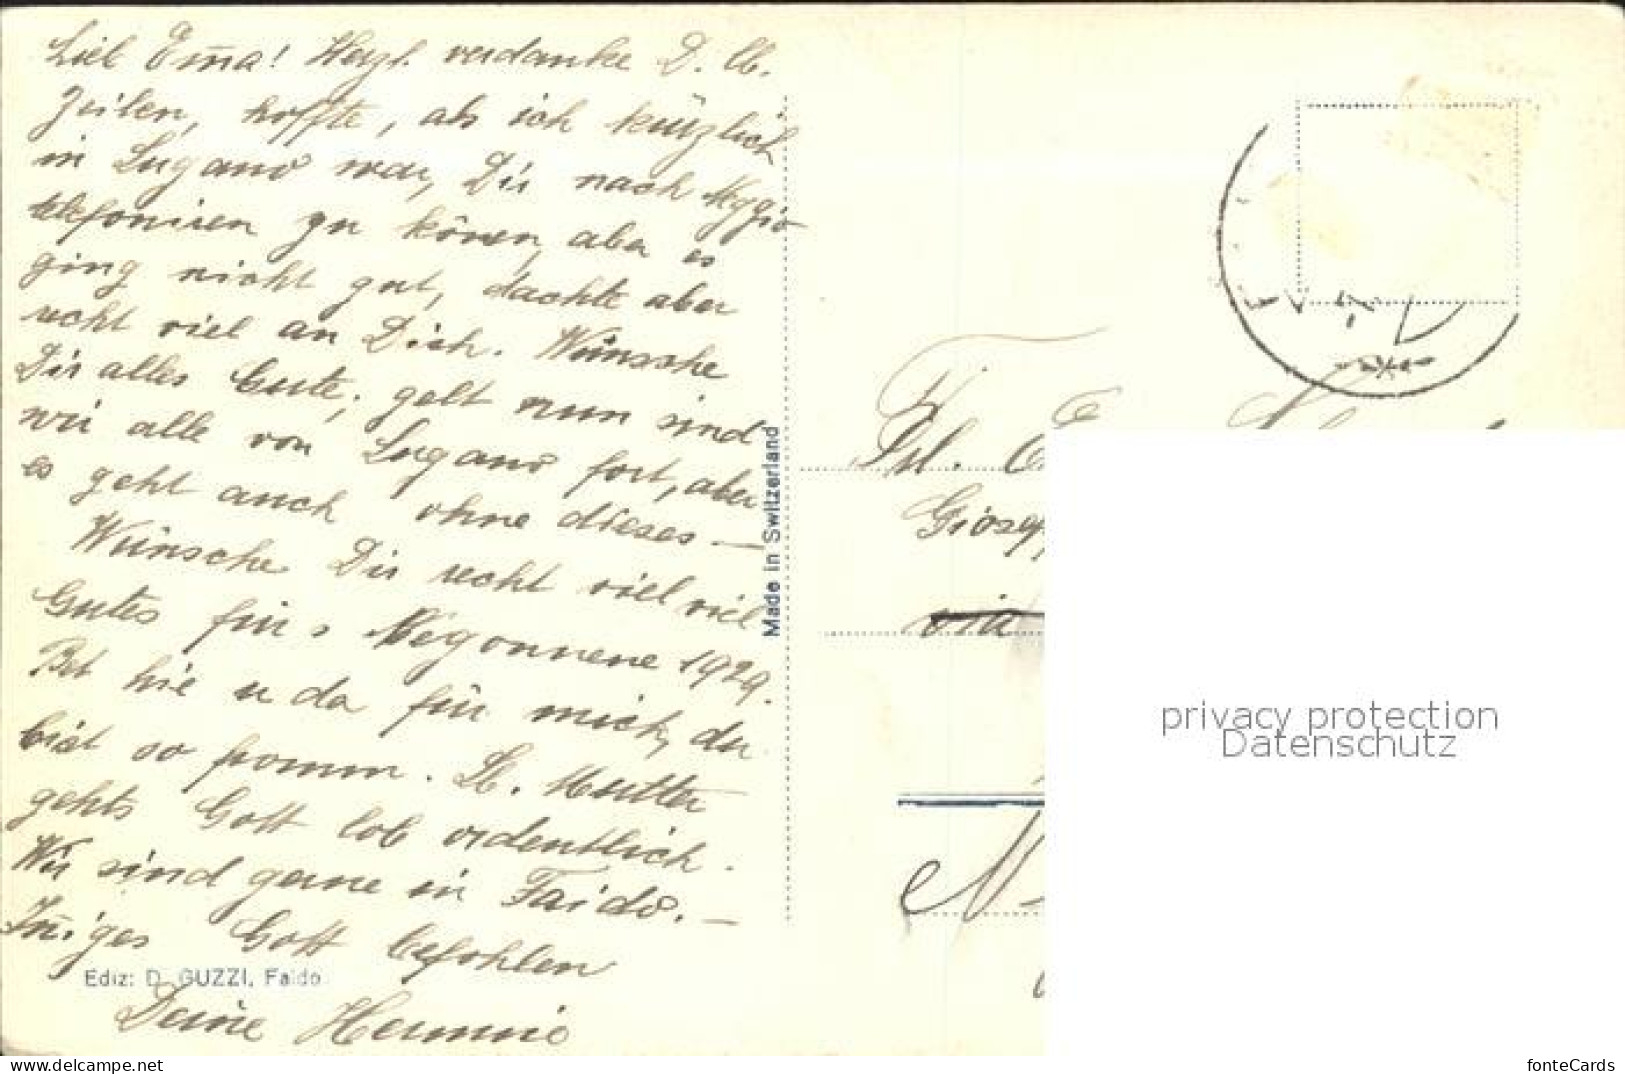 Lieb Em̄a! Herzl. verdanke D. lb.
Zeilen, hoffte, als ich kürzlich
in Lugano war, Dir nach Muggio
telefoniren zu kön̄en, aber es
ging nicht gut, dachte aber
recht viel an Dich. Wünsche
Dir alles Gute, gelt nun sind
wir alle von Lugano fort, aber
es geht auch ohne dieses —
Wünsche Dir recht viel viel
Gutes für's Begonnene 1929.
Bet hie u da für mich, du
bist so fromm. Lb. Mutter
gehts Gott lob ordentlich.
Wir sind gerne in Faido. —
In̄iges Gott befohlen
Ediz: D. GUZZI, Faido
Deine Hermine
Made in Switzerland
Frl.
via
privacy protection
Datenschutz
fonteCards
delcampe.net